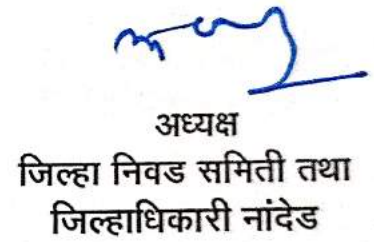 अध्यक्ष
जिल्हा निवड समिती तथा
जिल्हाधिकारी नांदेड